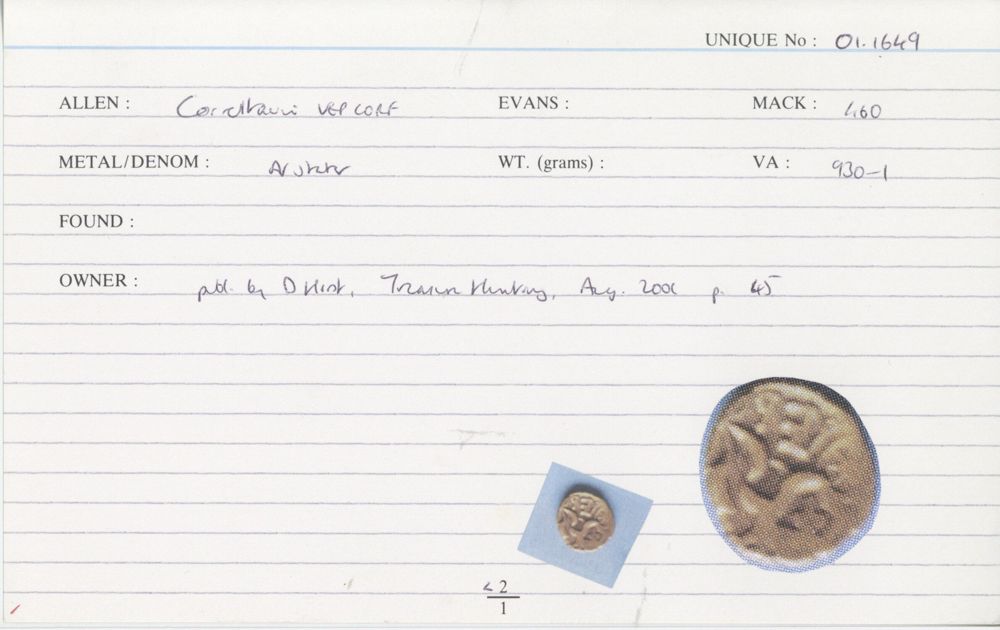 UNIQUE No : 01.1649
ALLEN : Corieltauvi VEP CORF EVANS : MACK : 460
METAL/DENOM : AV stater WT. (grams) : VA : 930-1
FOUND :
OWNER : publ. by D Hirst, Treasure Hunting, Aug. 2001 p. 45
< 2
1